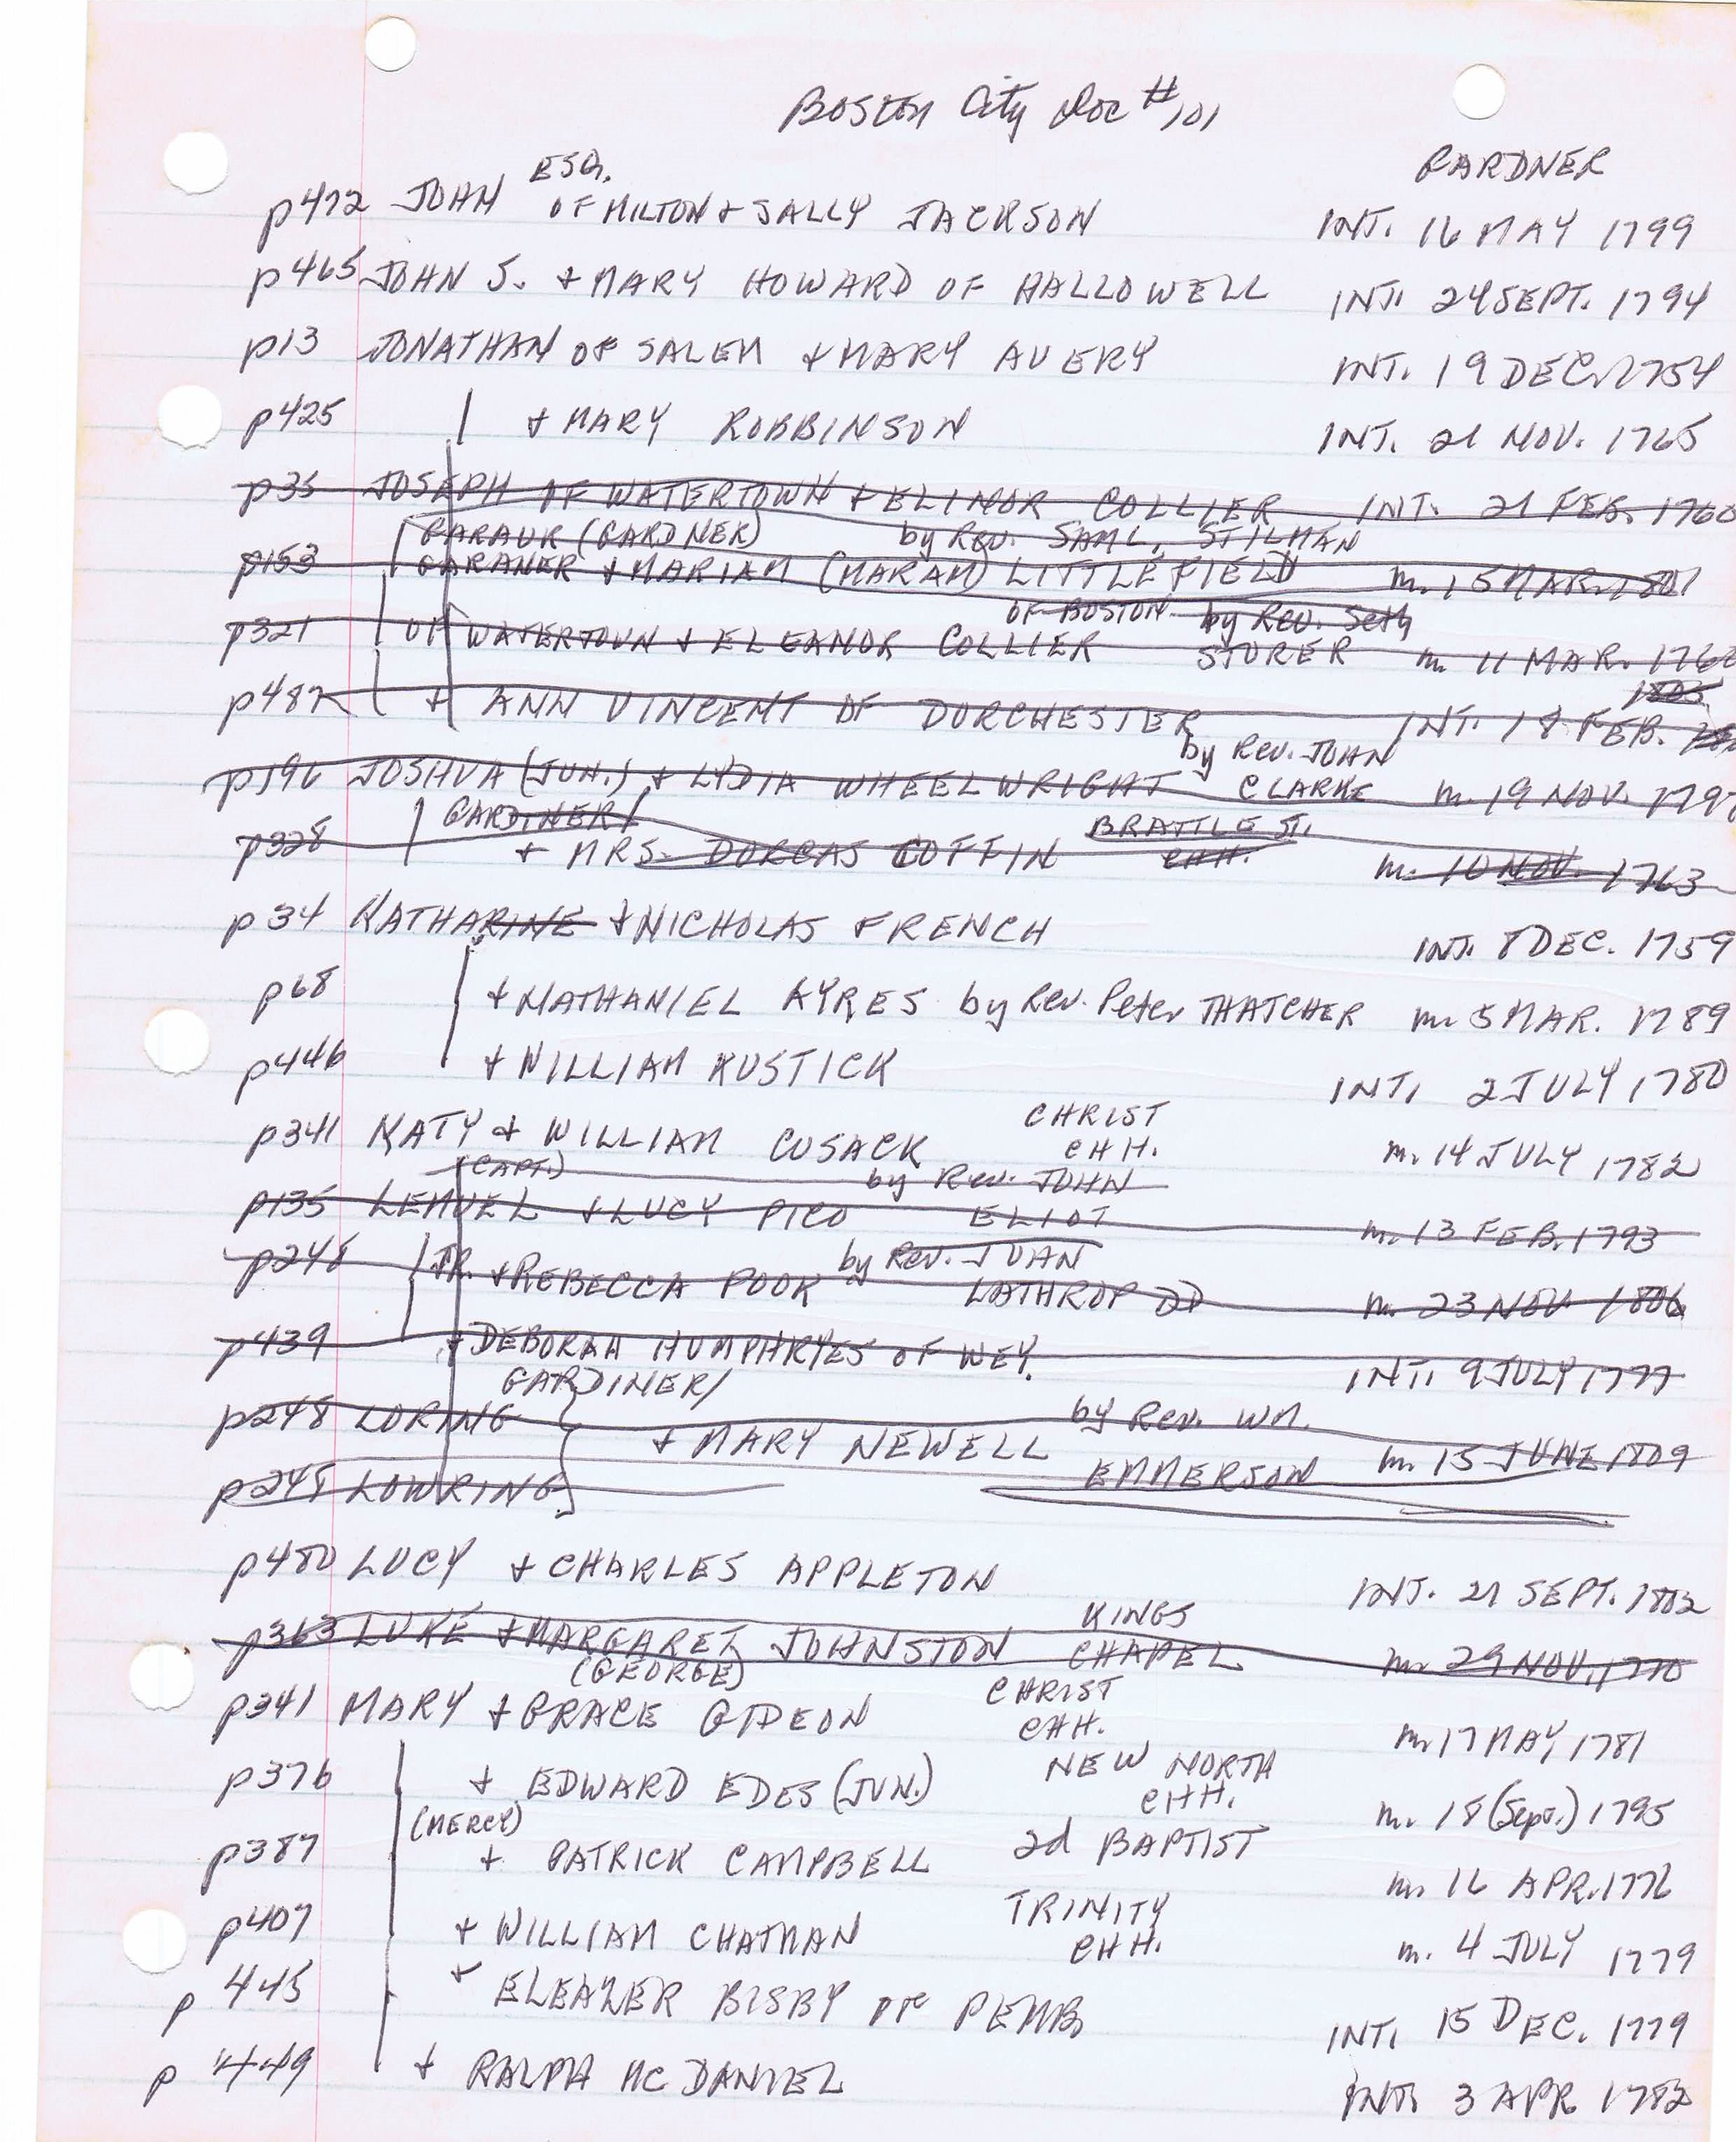 BOSTON City Doc #101
GARDNER
ESQ.
p472 JOHN OF MILTON & SALLY JACKSON INT. 16 MAY 1799
p465 JOHN S. & MARY HOWARD OF HALLOWELL INT. 24 SEPT. 1794
p13 JONATHAN OF SALEM & MARY AVERY INT. 19 DEC. 1754
p425 & MARY ROBBINSON INT. 21 NOV. 1765
p35 JOSEPH OF WATERTOWN & ELINOR COLLIER INT. 21 FEB. 1760
GARAUR (GARDNER) by Rev. SAML. STILMAN
p153 GARANER & MARIAM (MARAM) LITTLEFIELD m. 15 MAR. 1801
OF BOSTON by Rev. Seth
p321 OF WATERTOWN & ELEANOR COLLIER STORER m. 11 MAR. 1760
1805
p487 & ANN VINCENT OF DORCHESTER INT. 18 FEB.
by Rev. JOHN
p196 JOSHUA (JUN.) & LYDIA WHEELWRIGHT CLARKE m. 19 NOV.
GARDINER/ BRATTLE ST.
p328 & MRS. DORCAS COFFIN CHH. m. 10 NOV. 1763
p34 KATHARINE & NICHOLAS FRENCH INT. 8 DEC. 1759
p68 & NATHANIEL AYRES by Rev. Peter THATCHER m. 5 MAR. 1789
p446 & WILLIAM KUSTICK INT. 2 JULY 1780
CHRIST
p341 KATY & WILLIAM CUSACK CHH. m. 14 JULY 1782
(CAPT.) by Rev. JOHN
p135 LEMUEL & LUCY PICO ELIOT m. 13 FEB. 1793
by Rev. JOHN
p248 JR. & REBECCA POOK LATHROP DD m. 23 NOV 1806
p439 & DEBORAH HUMPHRYES OF WEY. INT. 9 JULY 1777
GARDINER/
p248 LORING by Rev. WM.
& MARY NEWELL EMMERSON m. 15 JUNE 1809
p248 LOWRING
p480 LUCY & CHARLES APPLETON INT. 21 SEPT. 1802
KINGS
p363 LUKE & MARGARET JOHNSTON CHAPEL m. 29 NOV. 1770
(GEORGE) CHRIST
p341 MARY & GRACE GIDEON CHH. m. 17 MAY, 1781
p376 & EDWARD EDES (JUN.) NEW NORTH CHH. m. 18 (Sept.) 1795
(MERCY)
p387 & PATRICK CAMPBELL 2d BAPTIST m. 16 APR. 1776
TRINITY
p407 & WILLIAM CHATMAN CHH. m. 4 JULY 1779
p 445 & ELEAZER BISBY OF PEMB. INT. 15 DEC. 1779
p 449 & RALPH MCDANIEL INT. 3 APR 1782